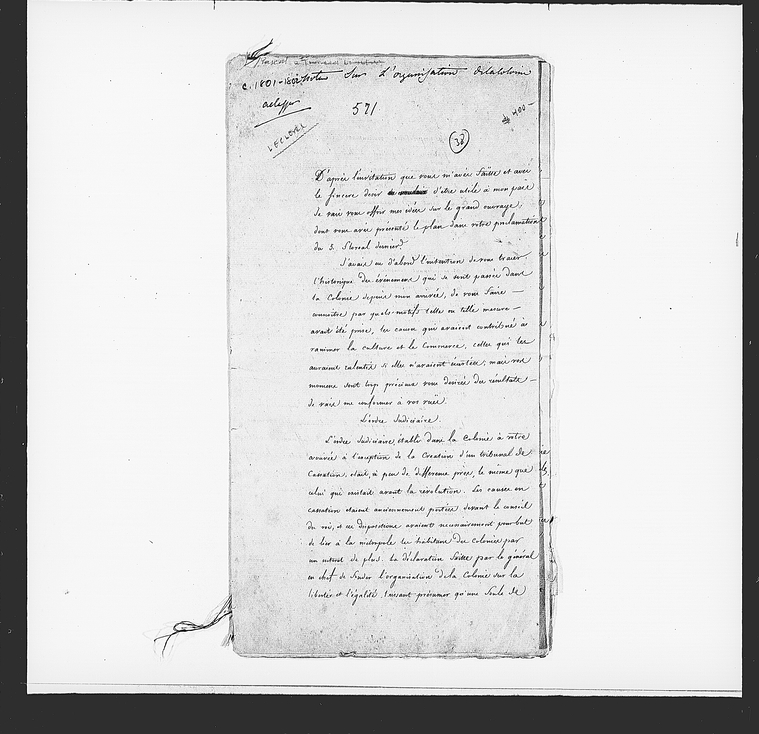 c. 1801-1802 Notes Sur L'organisation de la Colonie
571
$ 400-
LECLERC
38
D'après l'invitation que vous m'avez faitte et avec
le sincere desir d'etre utile à mon païs
je vais vous offrir mes idées sur le grand ouvrage,
dont vous avez présenté le plan dans votre proclamation
du 5. floreal dernier.
J'avais eu d'abord l'intention de vous tracer
l'historique des évènemens qui se sont passés dans
la Colonie depuis mon arrivée, de vous faire
connaitre par quels motifs telle ou telle mesure
avait été prise, les causes qui avaient contribué à
ranimer la culture et le Commerce, celles qui les
auraient ralenties si elles n'avaient éxistées; mais vos
momens sont trop précieux vous desirez des résultats
je vais me conformer à vos vues.
L'ordre Judiciaire.
L'ordre Judiciaire établi dans la Colonie à votre
arrivée à l'exception de la Création d'un tribunal de
Cassation, était, à peu de difference près, le même que
celui qui existait avant la révolution. Les causes en
cassation etaient anciennement portées devant le conseil
du roi, et ces dispositions avaient necessairement pour but
de lier à la métropole les habitans des Colonies par
un interet de plus. La déclaration faitte par le général
en chef de fonder l'organisation de la Colonie sur la
liberté et l'égalité, faisant présumer qu'une foule de